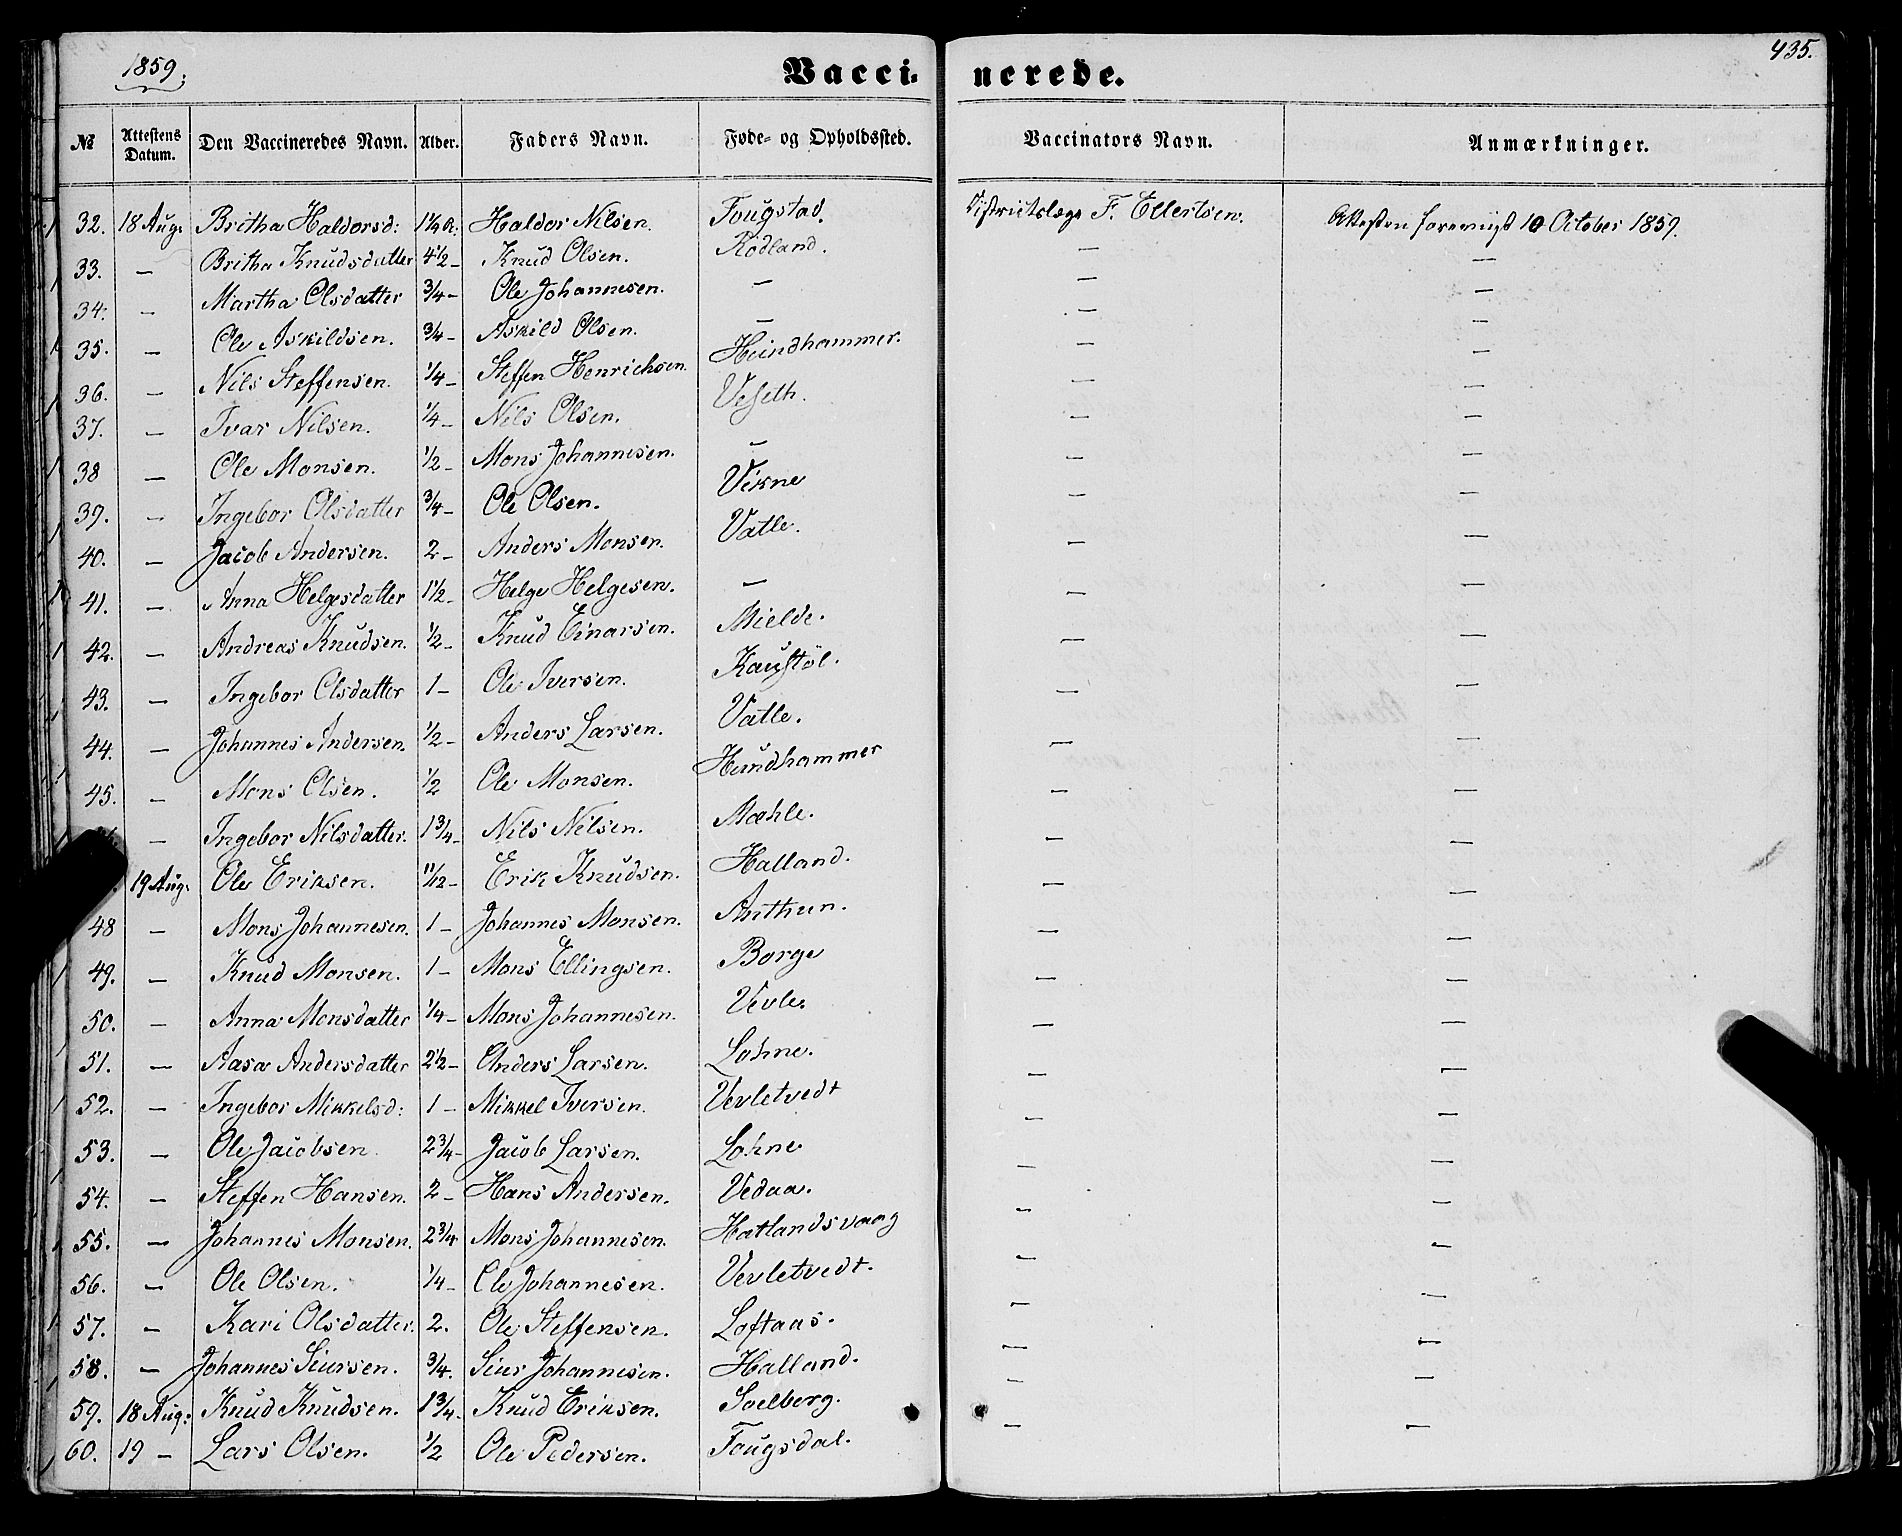 1859.
Vaccinerede.
435.
№ Attestens Datum. Den Vaccineredes Navn. Alder. Faders Navn. Føde- og Opholdssted. Vaccinators Navn. Anmærkninger.
32. 18 Aug: Britha Haldorsd: Haldor Nilsen. Fougstad. Districtslæge F. Ellertsen. Attesten foreviist 10 October 1859.
33. — Britha Knudsdatter 4½ — Knud Olsen. Rødland. — —
34. — Martha Olsdatter ¾ — Ole Johannesen. — — —
35. — Ole Askildsen. ¾ — Askild Olsen. — — —
36. — Nils Steffensen. ¼ — Steffen Henrichsen. Hundhammer. — —
37. — Ivar Nilsen. ¼ — Nils Olsen. Veseth. — —
38 — Ole Monsen. ½ — Mons Johannesen. — — —
39. — Ingebor Olsdatter ¾ — Ole Olsen. Vikne — —
40. — Jacob Andersen. 2 — Anders Monsen. Vatle. — —
41. — Anna Helgesdatter 1½ — Helge Helgesen. — — —
42. — Andreas Knudsen. ½ — Knud Einarsen. Mielde. — —
43. — Ingebor Olsdatter 1 — Ole Iversen. Kaustøl. — —
44. — Johannes Andersen. ½ — Anders Larsen. Vatle. — —
45. — Mons Olsen. ½ Ole Monsen. Hundhammer — —
— Ingebor Nilsdatter. 1¾ — Nils Nilsen. Mæhle. — —
19 Aug: Ole Eriksen. 11/12 — Erik Knudsen. Halland. — —
48 — Mons Johannesen. 1 — Johannes Monsen. Arthun. — —
49. — Knud Monsen. 1 — Mons Ellingsen. Borge — —
50. — Anna Monsdatter ¼ — Mons Johannesen. Vevle. — —
51. — Aasa Andersdatter 2½ — Anders Larsen. Lohne. — —
52. — Ingebor Mikkelsd: 1 — Mikkel Iversen. Vevletvedt — —
53. — Ole Jacobsen 2¾ — Jacob Larsen. Lohne — —
54. — Steffen Hansen. 2 — Hans Andersen. Vedaa. — —
55. — Johannes Monsen. 2¾ Mons Johannesen. Hatlandsvaag — —
56. — Ole Olsen. ¼ — Ole Johannesen. Vevletvedt. — —
57. — Kari Olsdatter. 2. Ole Steffensen. Loftaas. — —
58. — Johannes Siursen. ¾. Siur Johannesen. Halland. — —
59. 18 Aug: Knud Knudsen. 1¾. Knud Eriksen. Soelberg. — —
60. 19 — Lars Olsen. ½ Ole Pedersen. Fougsdal.